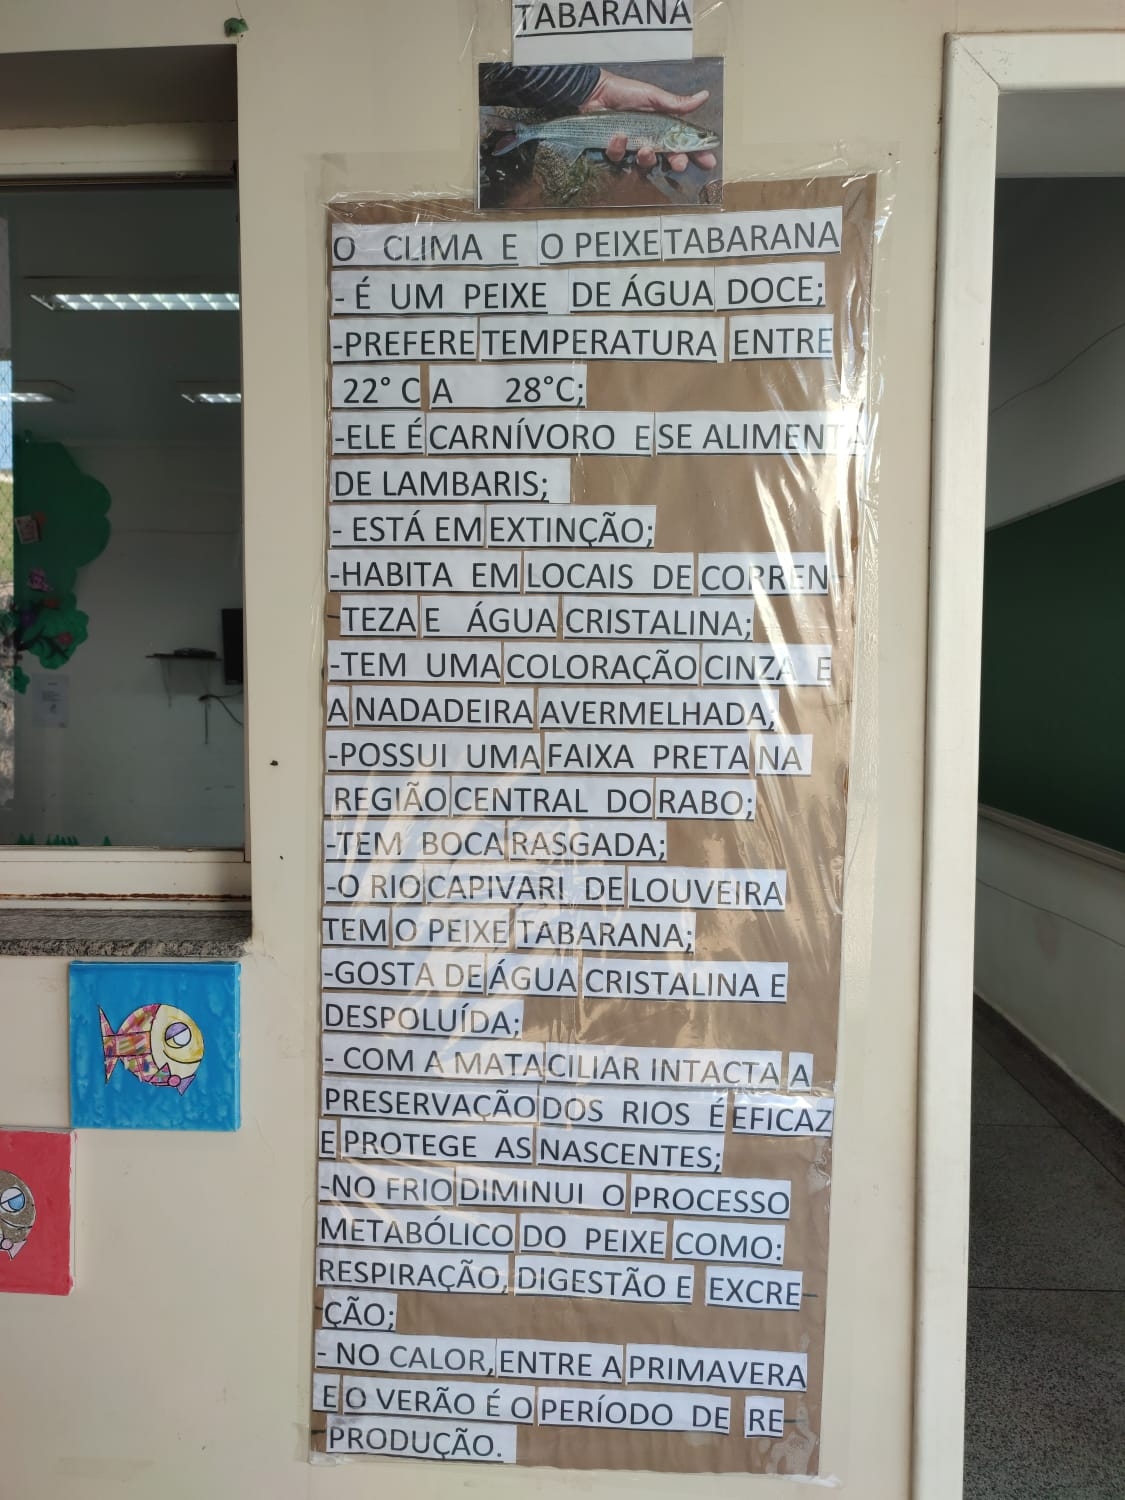 TABARANA
O CLIMA E O PEIXE TABARANA
- É UM PEIXE DE ÁGUA DOCE;
-PREFERE TEMPERATURA ENTRE
22° C A 28°C;
-ELE É CARNÍVORO E SE ALIMENTA
DE LAMBARIS;
- ESTÁ EM EXTINÇÃO;
-HABITA EM LOCAIS DE CORREN-
TEZA E ÁGUA CRISTALINA;
-TEM UMA COLORAÇÃO CINZA E
A NADADEIRA AVERMELHADA;
-POSSUI UMA FAIXA PRETA NA
REGIÃO CENTRAL DO RABO;
-TEM BOCA RASGADA;
-O RIO CAPIVARI DE LOUVEIRA
TEM O PEIXE TABARANA;
-GOSTA DE ÁGUA CRISTALINA E
DESPOLUÍDA;
- COM A MATA CILIAR INTACTA A
PRESERVAÇÃO DOS RIOS É EFICAZ
E PROTEGE AS NASCENTES;
-NO FRIO DIMINUI O PROCESSO
METABÓLICO DO PEIXE COMO:
RESPIRAÇÃO, DIGESTÃO E EXCRE-
ÇÃO;
- NO CALOR, ENTRE A PRIMAVERA
E O VERÃO É O PERÍODO DE RE-
PRODUÇÃO.